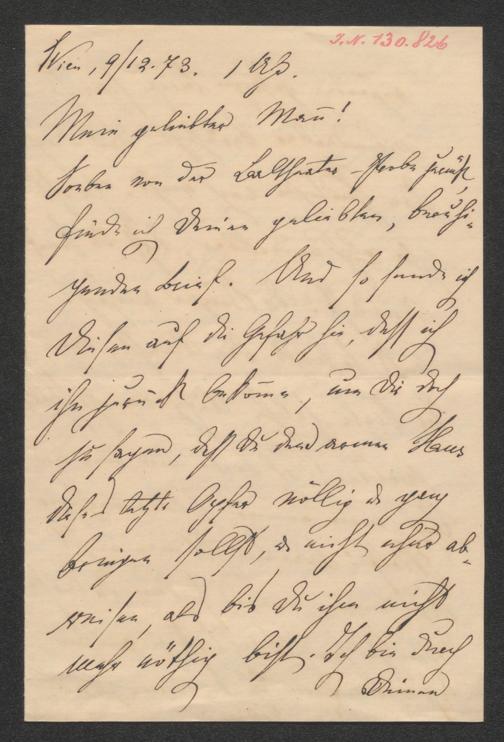 J.N. 130.826
Wien, 9/12.73. 1 Uhr.
Mein geliebter Mann!
Soeben von der Probe zurück,
finde ich Deinen geliebten, beruhi-
genden Brief. Und so sende ich
diesen auf die Gefahr hin, daß ich
ihn zurück bekomme, um Dir doch
zu sagen, daß Du dem armen Hans
dieses letzte Opfer völlig u ganz
bringen sollst, u nicht eher ab-
reisen, als bis Du ihm nicht
mehr nöthig bist. Ich bin durch
Deinen